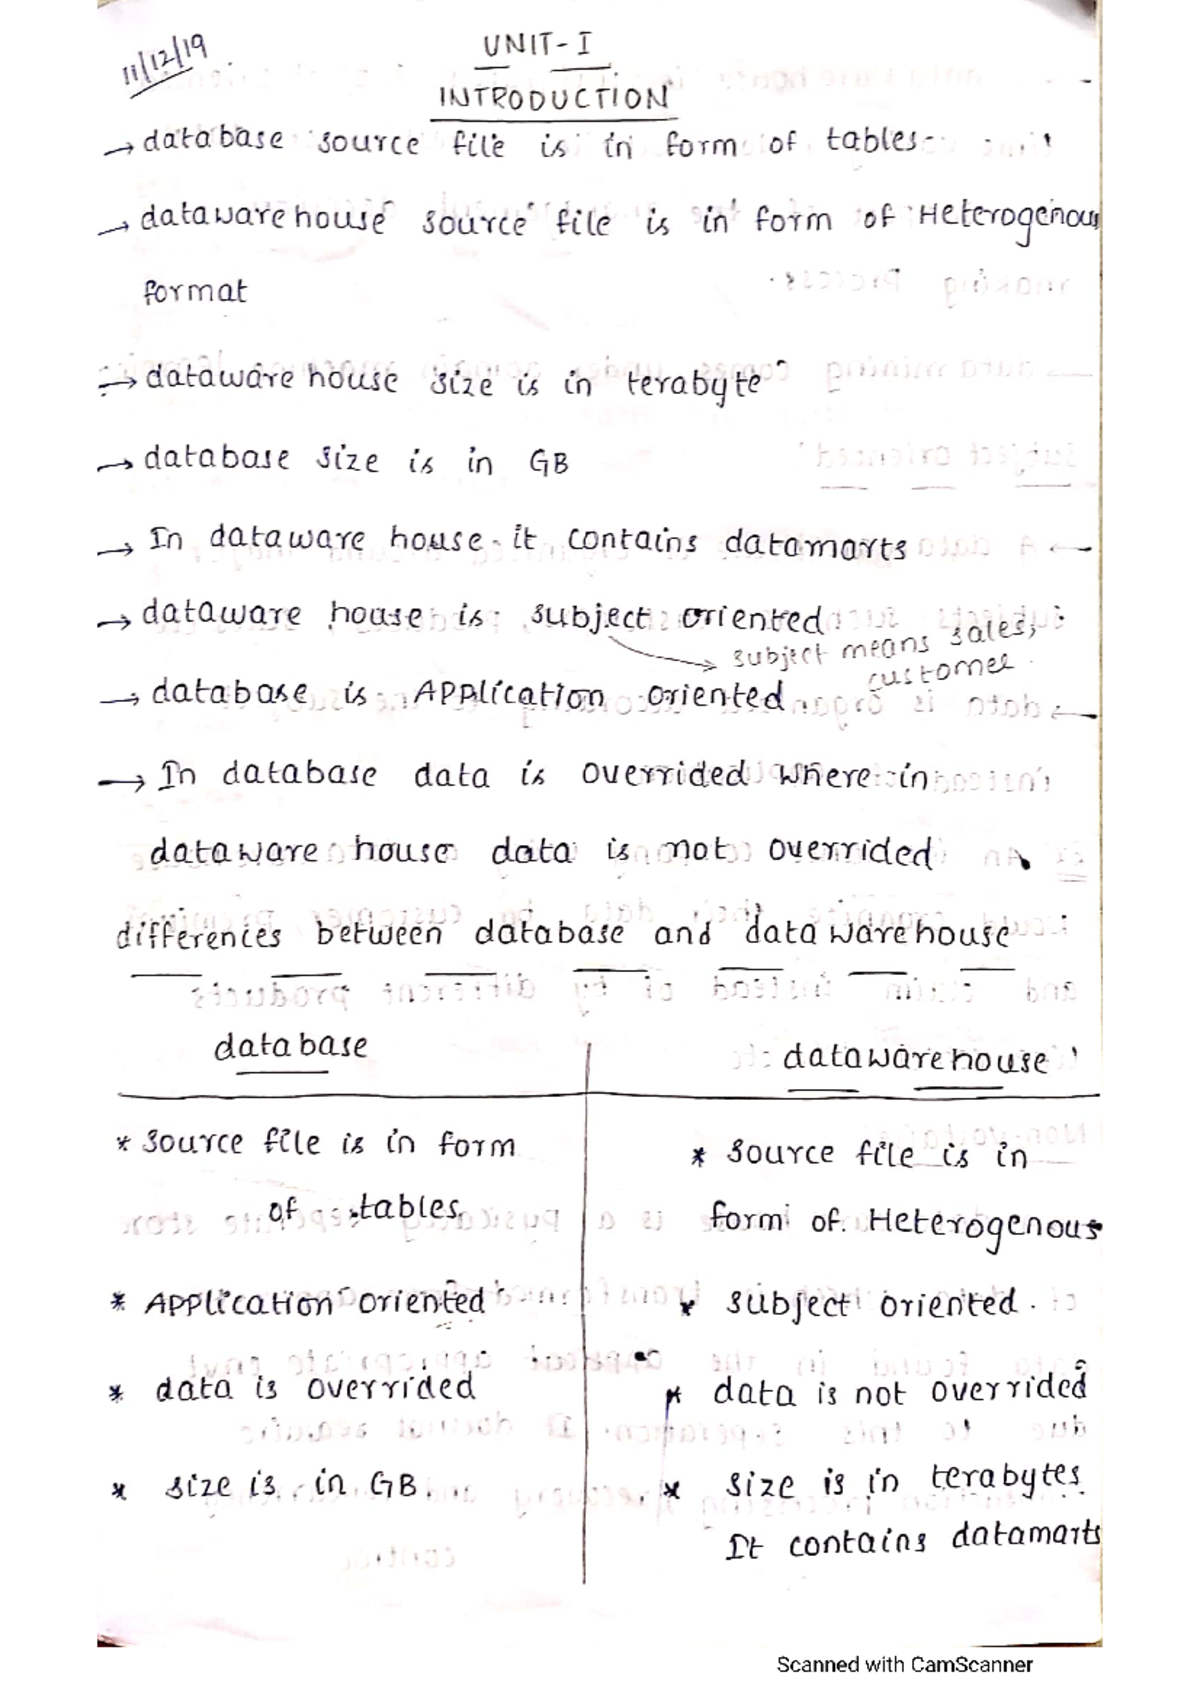 11/12/19
UNIT-I
INTRODUCTION
→ database source file is in form of tables
→ dataware house source file is in form of Heterogenous
format
→ dataware house size is in terabyte
→ database size is in GB
→ In dataware house it contains datamarts
→ dataware house is subject oriented
subject means sales,
customer
→ database is Application oriented
→ In database data is overrided where in
dataware house data is not overrided
differences between database and dataware house
database
datawarehouse
* source file is in form
of tables
* Application oriented
* data is overrided
* size is in GB.
* source file is in
form of Heterogenous
* subject oriented.
* data is not overrided
* size is in terabytes
It contains datamarts
Scanned with CamScanner